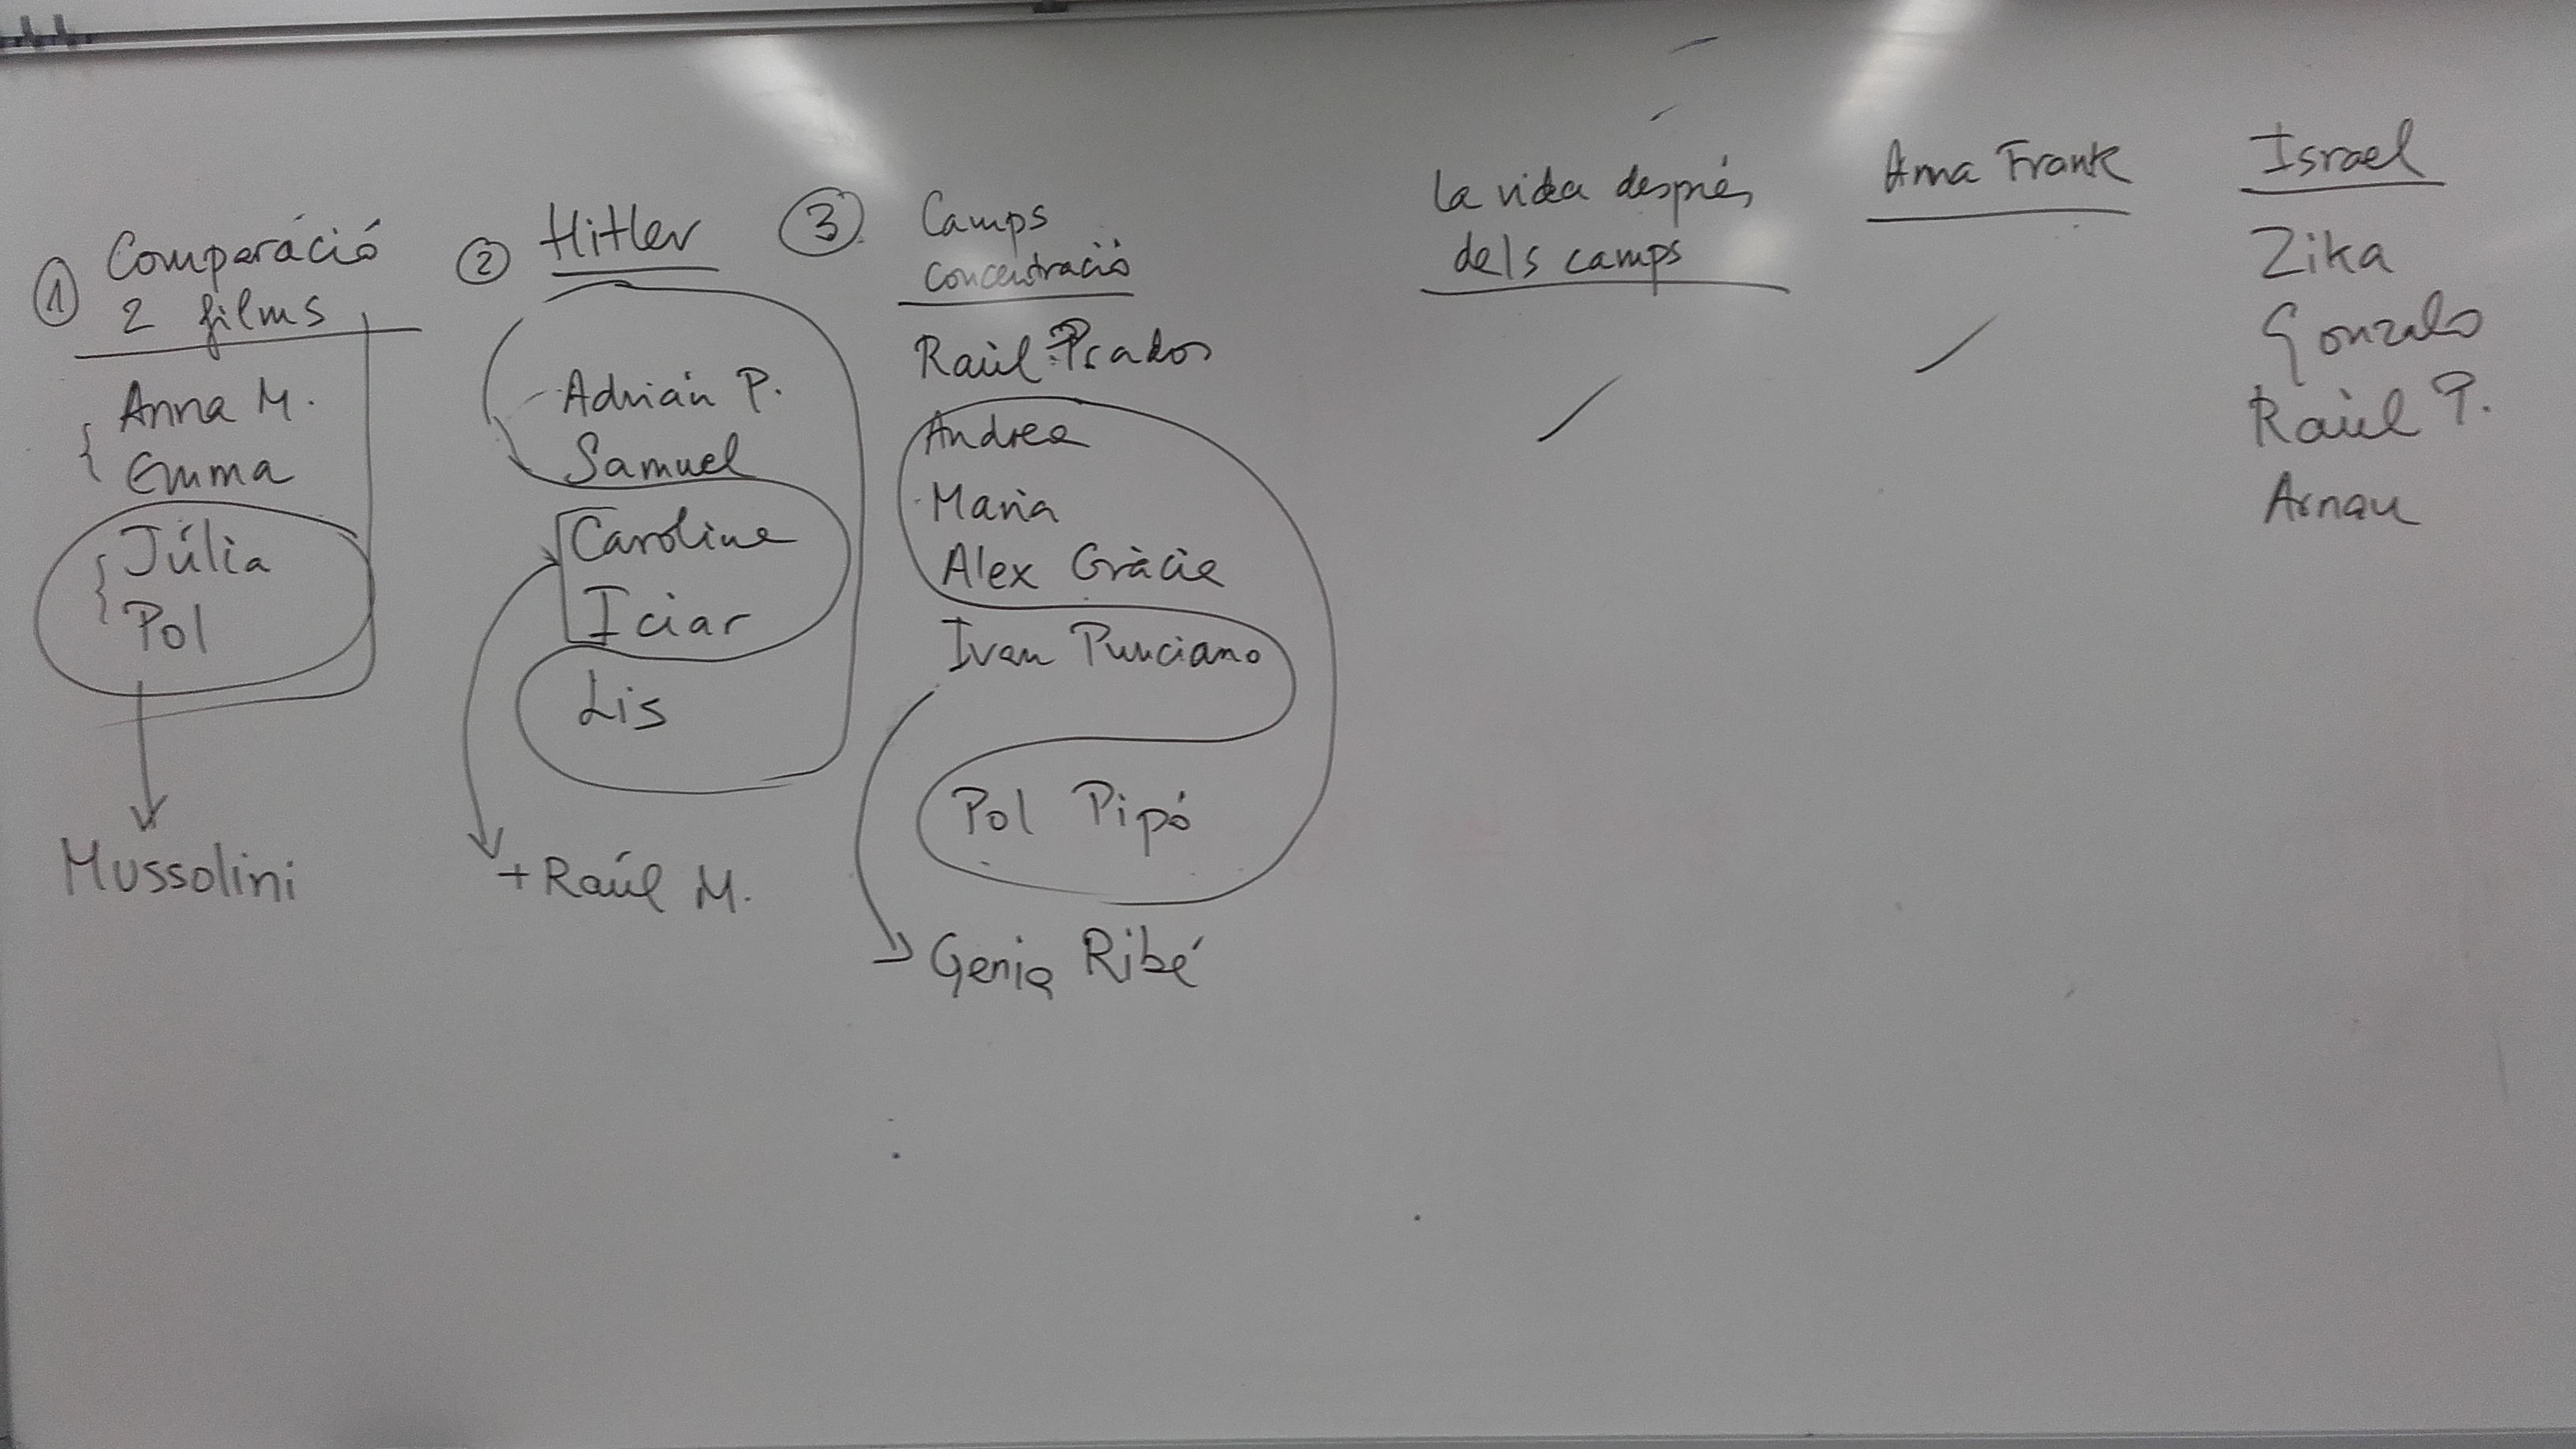 ① Comparació
2 films
Anna M.
Emma
Júlia
Pol
Mussolini
② Hitler
Adrián P.
Samuel
Caroline
Iciar
Lis
+ Raúl M.
③ Camps
concentració
Raül Prados
Andrea
Maria
Alex Gràcia
Ivan Punciano
Pol Pipó
Genia Ribé
la vida després
dels camps
Anna Frank
Israel
Zika
Gonzalo
Raül P.
Arnau